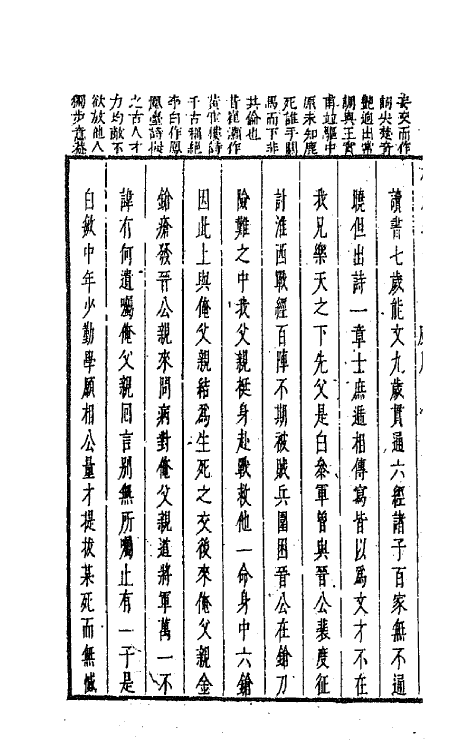 而作
詞尖楚奇
艷迥出當
調與王實
甫竝驅中
原未知鹿
死誰手關
馬而下非
其倫也
昔崔灝作
黃鶴樓詩
千古稱絕
李白作鳳
凰臺詩儗
之古人才
力均敵不
欲放他人
獨步意葢
讀書七歲能文九歲貫通六經諸子百家無不通
曉但出詩一章士庶遞相傳寫皆以爲文才不在
我兄樂天之下先父是白參軍曾與晉公裴度征
討淮西戰經百陣不期被賊兵圍困晉公在鎗刀
險難之中我父親挺身赴戰救他一命身中六鎗
因此上與俺父親結爲生死之交後來俺父親金
鎗瘡發晉公親來問病對俺父親道將軍萬一不
諱有何遺囑俺父親囘言別無所囑止有一子是
白敏中年少勤學願相公量才提拔某死而無憾